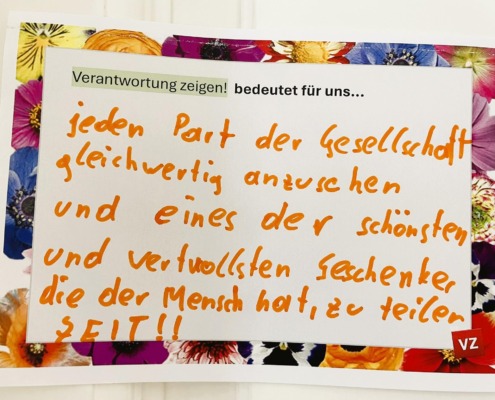 Verantwortung zeigen! bedeutet für uns...
jeden Part der Gesellschaft
gleichwertig anzusehen
und eines der schönsten
und wertvollsten Geschenke,
die der Mensch hat, zu teilen
ZEIT!!
VZ